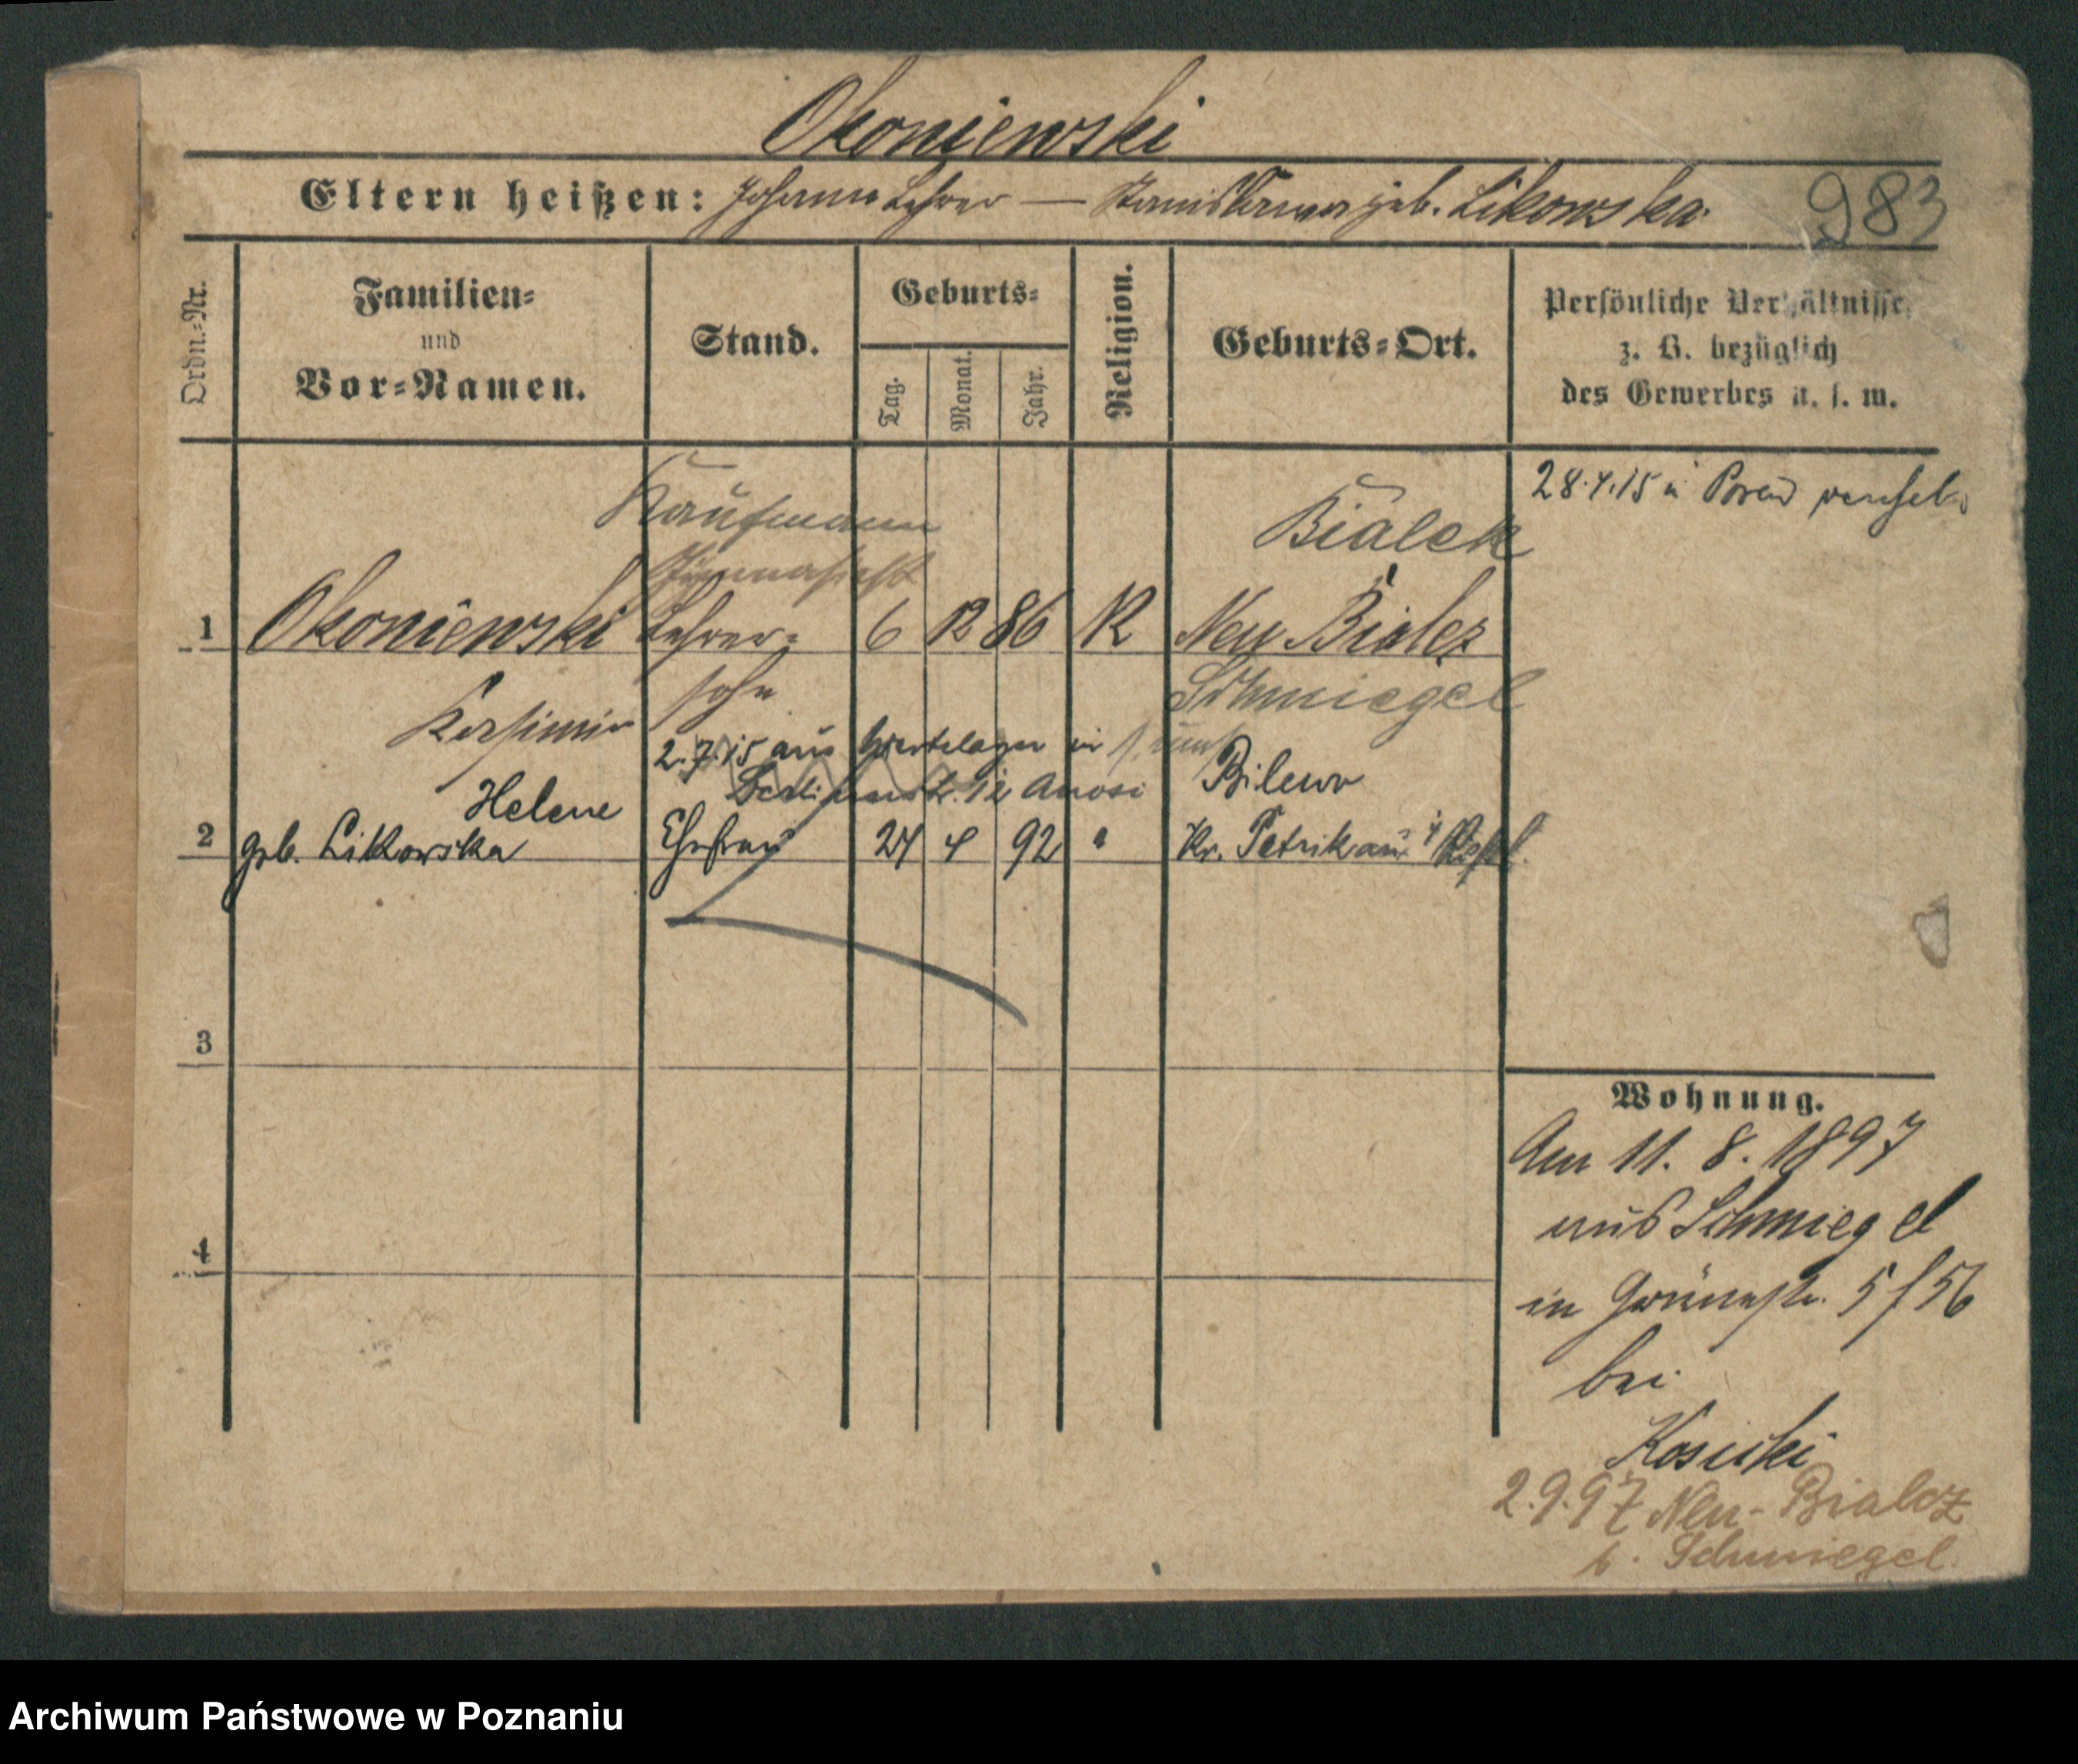 Okoniewski
Eltern heißen: Johann Lehrer — Stanislawa geb. Likowska
983
Ordn.-Nr.
Familien-
und
Vor-Namen.
Stand.
Geburts-
Tag.
Monat.
Jahr.
Religion.
Geburts-Ort.
Persönliche Verhältnisse,
z. B. bezüglich
des Gewerbes u. s. w.
28.4.15 in Posen
Kaufmann
Bialek
Gymnasiast
1 Okoniewski Lehrer- 6 12 86 K Neu Bialcz
Kasimir sohn Schmiegel
2.7.15 aus in
Bilewo
Helene
2 geb. Likowska Ehefrau 24 4 92 " Kr. Petrikau
3
4
Wohnung.
Am 11. 8. 1897
aus Schmiegel
in Grünestr. 5 / 56
bei
Kosicki
2.9.97 Neu-Bialcz
b. Schmiegel
Archiwum Państwowe w Poznaniu